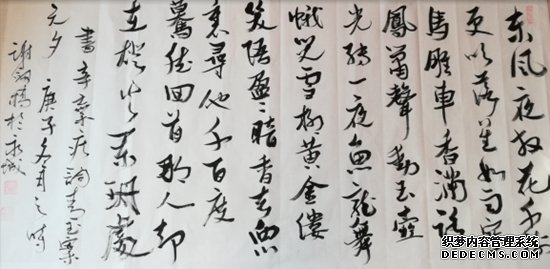 东风夜放花千
更吹落星如雨宝
马雕车香满路
凤箫声动玉壶
光转一夜鱼龙舞
蛾儿雪柳黄金缕
笑语盈盈暗香去众
里寻他千百度
蓦然回首那人却
在灯火阑珊處
書辛弃疾词青玉案
元夕 庚子冬月之時
织梦内容管理系统
DEDECMS.COM